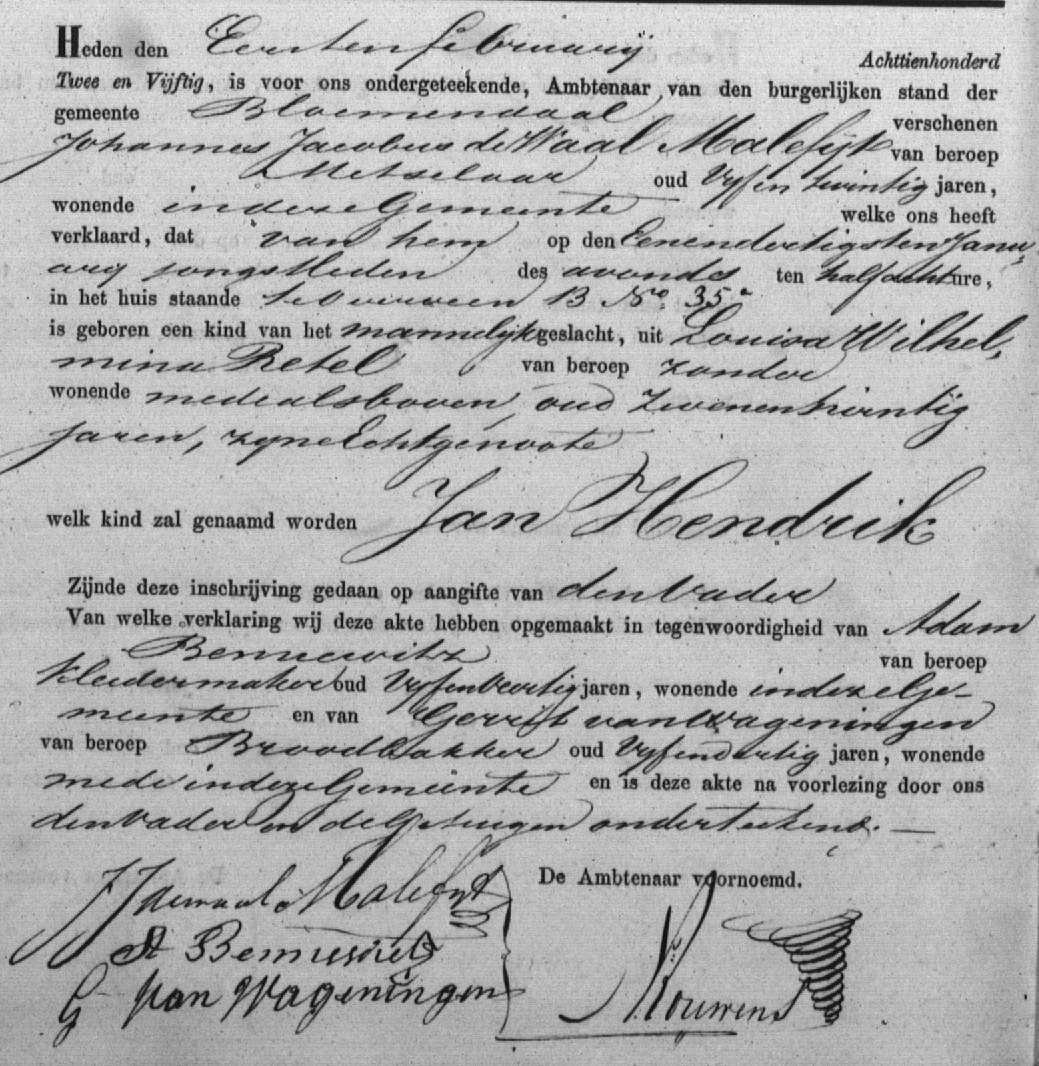 Heden den Eersten februarij Achttienhonderd
Twee en Vijftig, is voor ons ondergeteekende, Ambtenaar van den burgerlijken stand der
gemeente Bloemendaal verschenen
Johannes Jacobus de Waal Malefijt van beroep
Metselaar oud Vyfentwintig jaren,
wonende in deze Gemeente welke ons heeft
verklaard, dat van hem op den Eenendertigsten Janu„
ary jongstleden des avonds ten half acht ure,
in het huis staande te Overveen B No. 35a
is geboren een kind van het mannelyk geslacht, uit Louisa Wilhel„
mina Retel van beroep zonder
wonende mede als boven, oud Zevenentwintig
jaren, zyne Echtgenoote
welk kind zal genaamd worden Jan Hendrik
Zijnde deze inschrijving gedaan op aangifte van den Vader
Van welke verklaring wij deze akte hebben opgemaakt in tegenwoordigheid van Adam
Bennewitz van beroep
Kleedermaker oud Vyfenveertig jaren, wonende in deze Ge-
meente en van Gerrit van Wageningen
van beroep Broodbakker oud Vyfendertig jaren, wonende
mede in deze Gemeente en is deze akte na voorlezing door ons
den Vader en de Getuigen onderteekend. —
JJ de Waal Malefyt De Ambtenaar voornoemd.
A Bennewitz
G van Wageningen